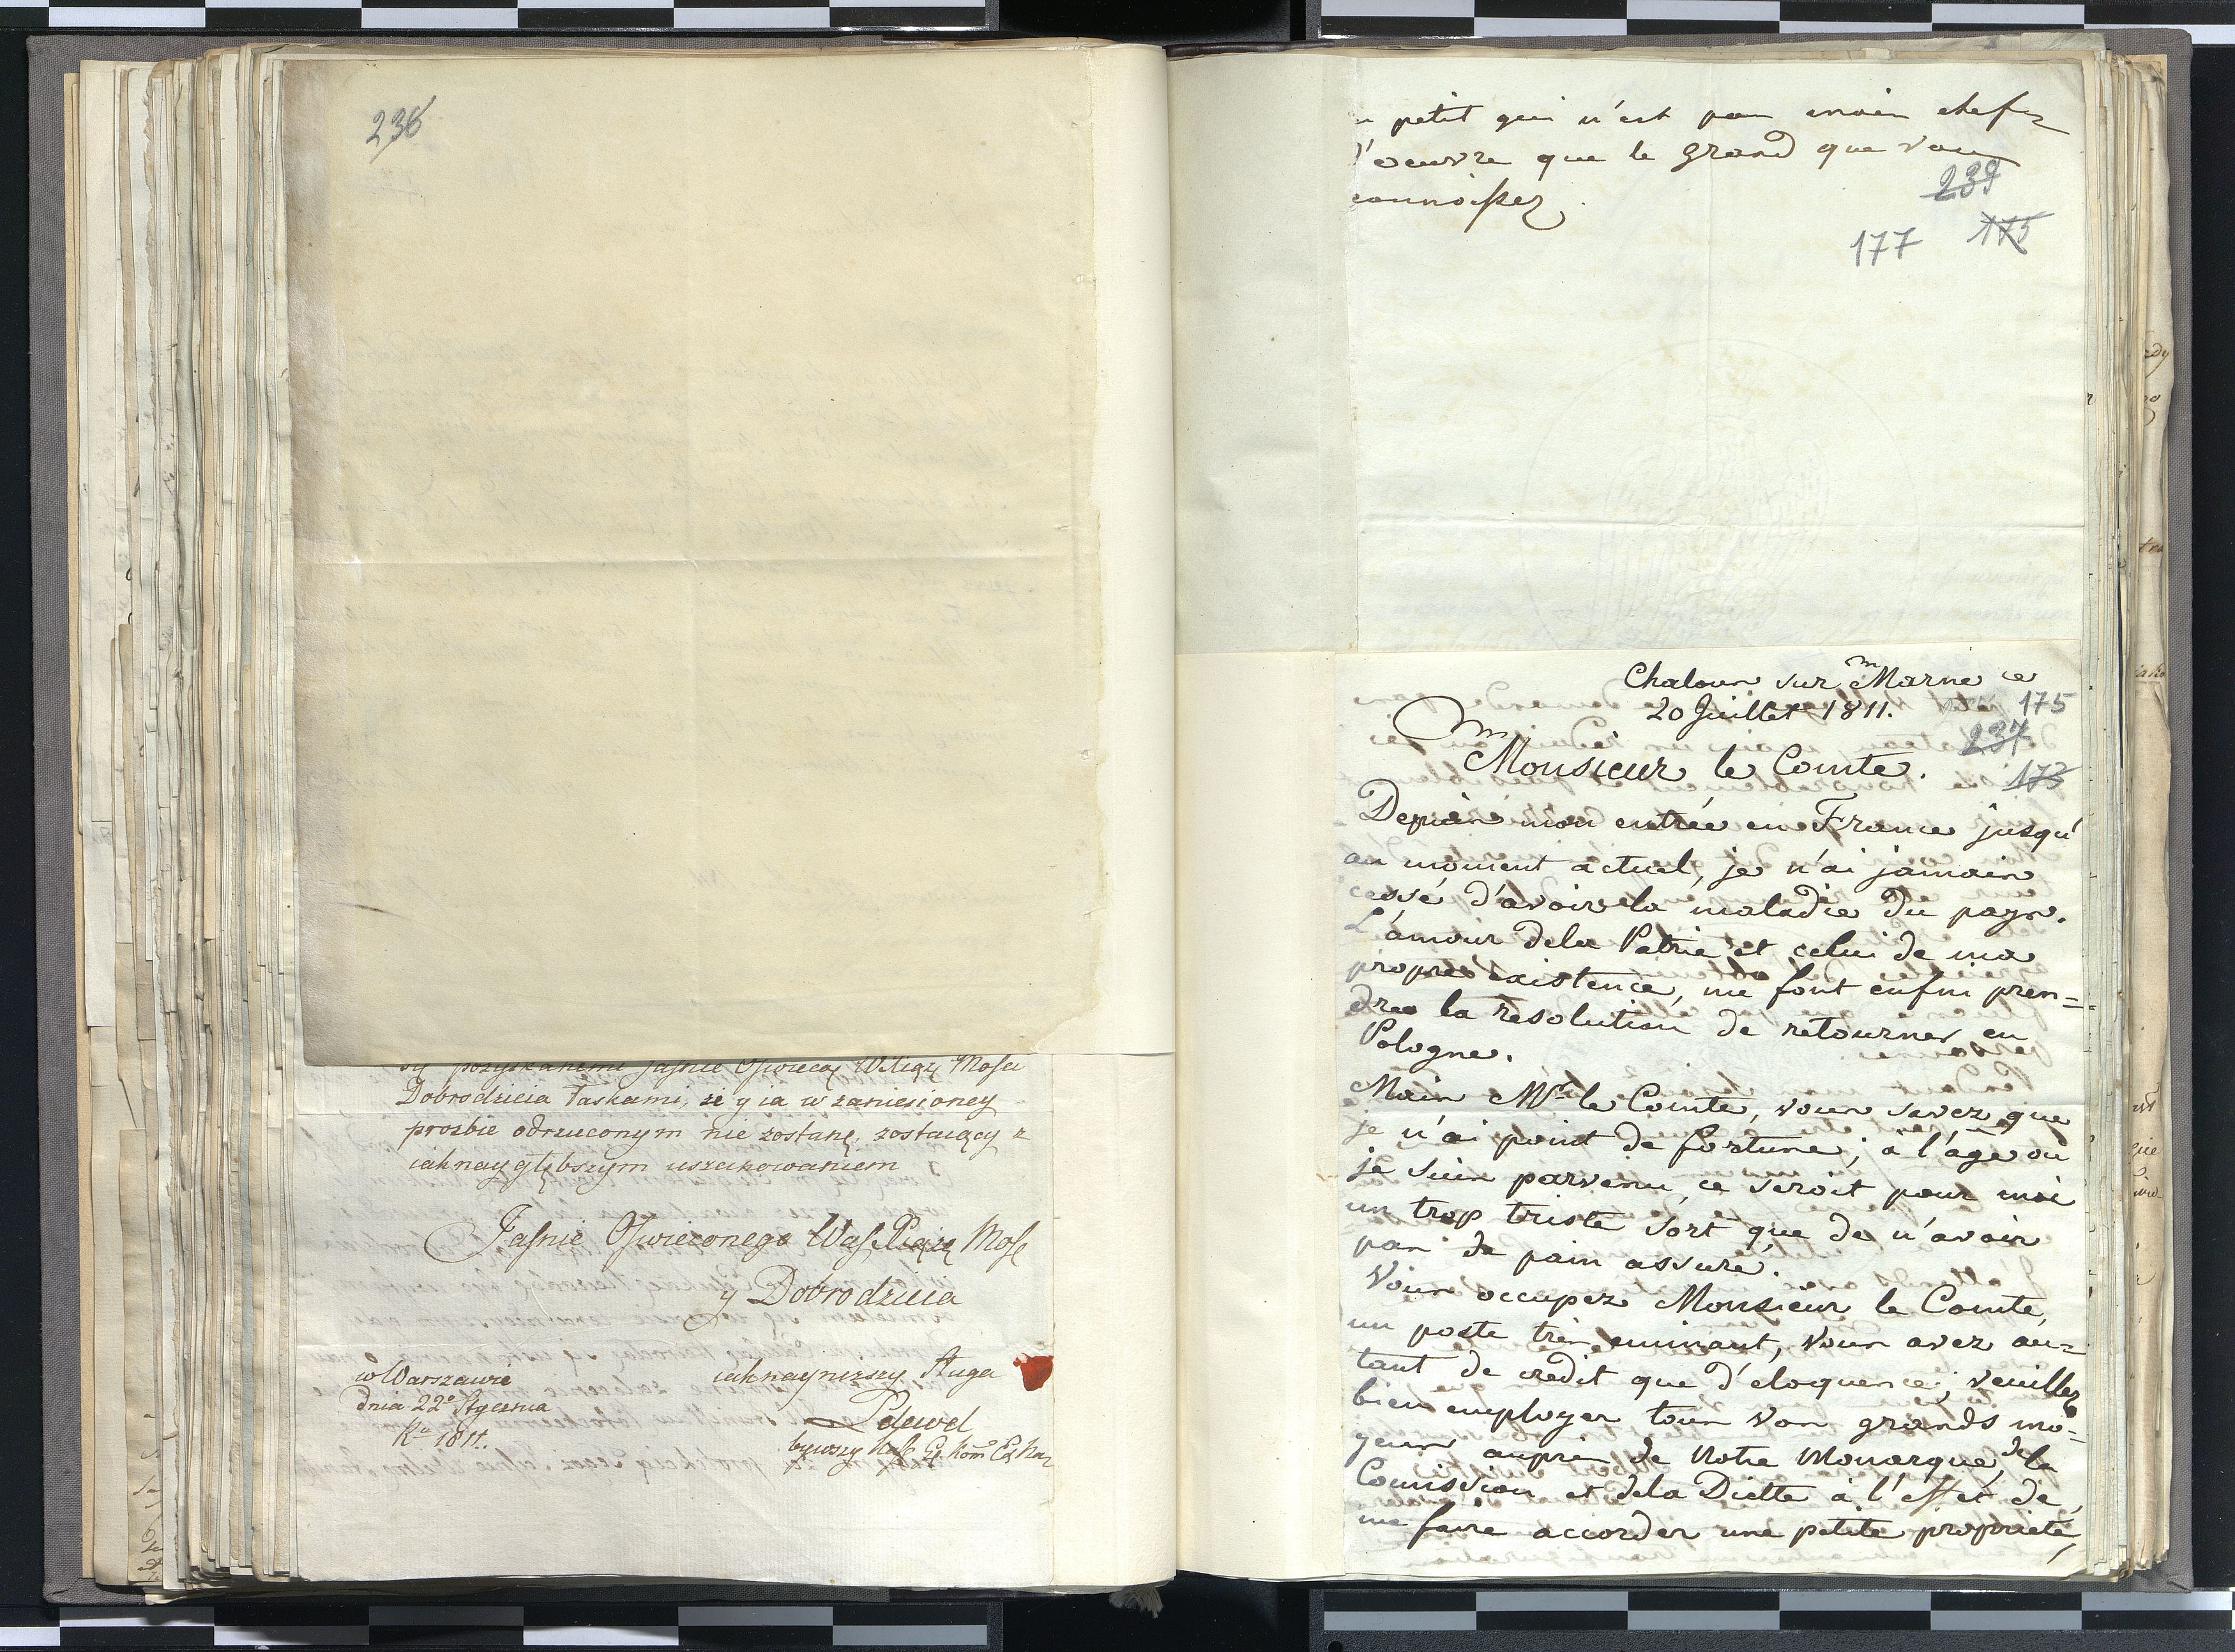 236
pozyskanemi Jaśnie Oświecoy W Xiąży Mości
Dobrodzieia Łaskami, że y ia w zaniesioney
prozbie odrzuconym nie zostanę, zostaiący z
iaknaygłębszym uszanowaniem
Jaśnie Oświeconego Waß Xiążę Mość
y Dobrodzieia
w Warszawie
dnia 22º Stycznia
Ru 1811.
iaknayniższy Sługa
Lelewel
bywszy
petit qui n'est pas moins chef
d'oeuvre que le Grand que vous
connoissez.
239
177 175
Chalons sur Marne ce
20 Juillet 1811.
175
237
173
Monsieur le Comte.
Depuis mon entrée en France jusqu'
au moment actuel, je n'ai jamais
cessé d'avoir la maladie du pays.
L'amour dela Patrie et celui de ma
propre existence, me font enfin pren=
dre la resolution de retourner en
Pologne.
Mais Mr. le Comte, vous savez que
je n'ai point de fortune; à l'âge où
je suis parvenu, ce seroit pour moi
un trop triste sort que de n'avoir
pas de pain assuré.
Vous occupez Monsieur le Comte,
un poste très eminant, vous avez au=
tant de credit que d'eloquence; veuillez
bien employer tous vos grands mo=
yens auprès de Notre Monarque, dela
Comission et dela Diette à l'effet de
me faire accorder une petite proprieté,